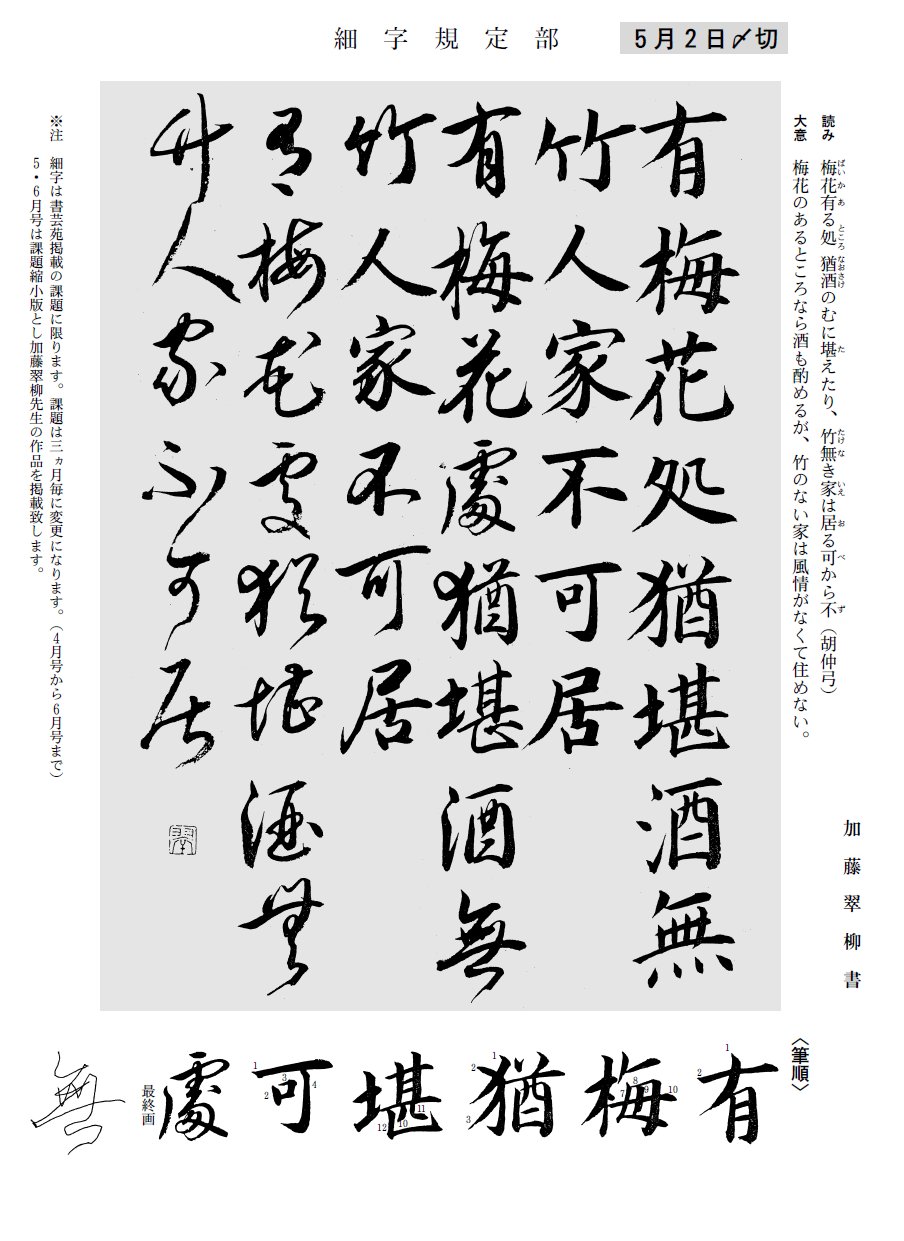 細字規定部
5月2日〆切
読み　梅花有る処　猶酒のむに堪えたり、竹無き家は居る可から不（胡仲弓）
ばいかあ　ところ　なおさけ　た　たけな　いえ　お　べ　ず
大意　梅花のあるところなら酒も酌めるが、竹のない家は風情がなくて住めない。
加藤翠柳書
有梅花処猶堪酒無
竹人家不可居
有梅花處猶堪酒無
竹人家不可居
有梅花處猶堪酒無
竹人家不可居
※注　細字は書芸苑掲載の課題に限ります。課題は三ヵ月毎に変更になります。（4月号から6月号まで）
5・6月号は課題縮小版とし加藤翠柳先生の作品を掲載致します。
〈筆順〉
有
1
2
梅
7
8
9
10
猶
1
2
3
堪
10
11
12
可
1
2
3
4
處
最終画
無